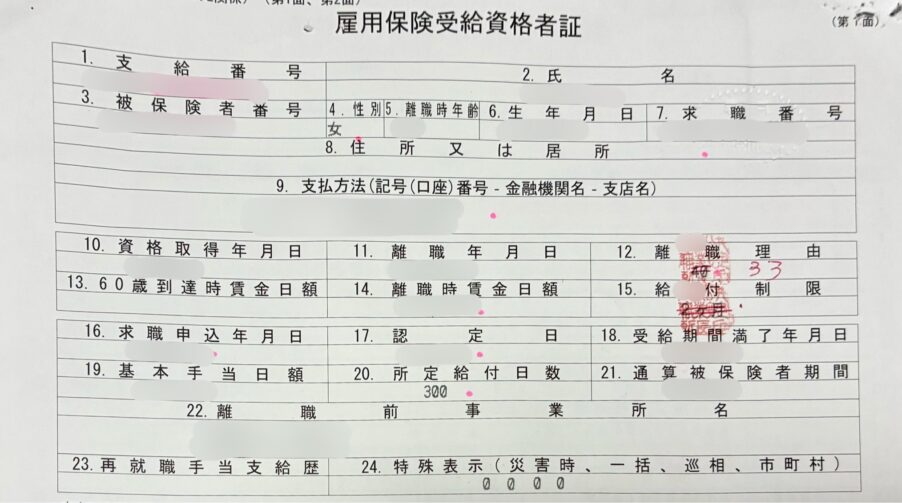 (第1面、第2面)
雇用保険受給資格者証
(第1面)
1. 支給番号
2. 氏名
3. 被保険者番号
4. 性別
5. 離職時年齢
6. 生年月日
7. 求職番号
女
8. 住所又は居所
9. 支払方法(記号(口座)番号 - 金融機関名 - 支店名)
10. 資格取得年月日
11. 離職年月日
12. 離職理由
33
13. 60歳到達時賃金日額
14. 離職時賃金日額
15. 給付制限
2ヶ月
16. 求職申込年月日
17. 認定日
18. 受給期間満了年月日
19. 基本手当日額
20. 所定給付日数
21. 通算被保険者期間
300
22. 離職前事業所名
23. 再就職手当支給歴
24. 特殊表示(災害時、一括、巡相、市町村)
0 0 0 0